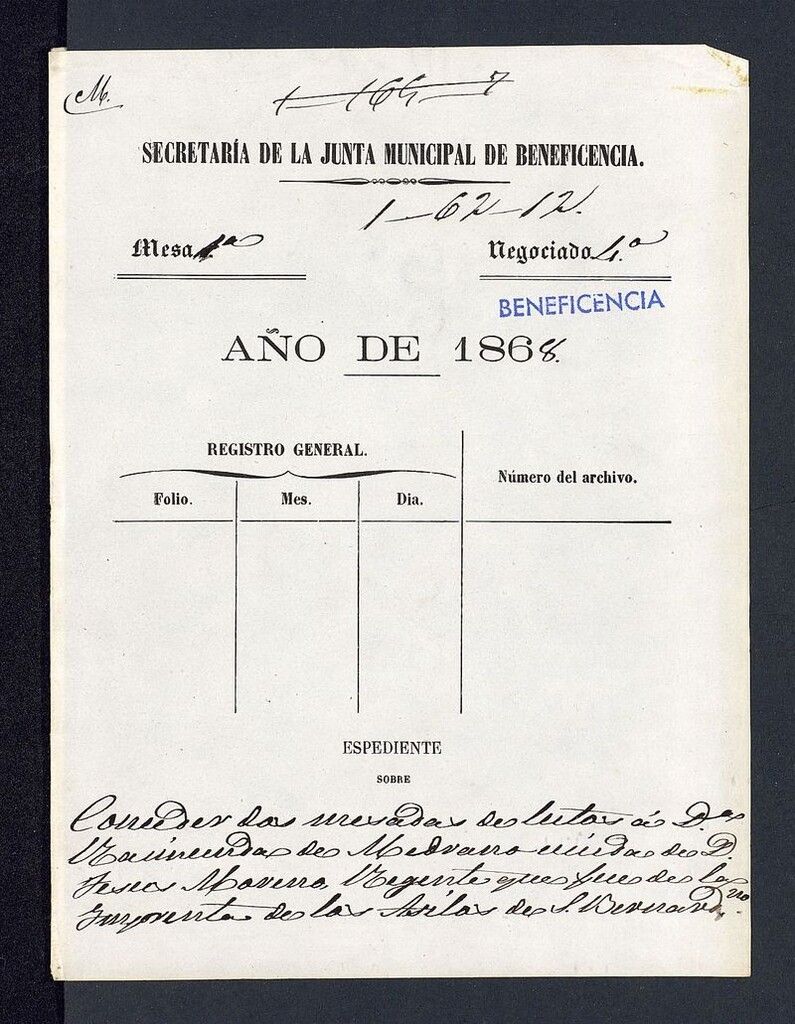 M.
1-164-7
SECRETARÍA DE LA JUNTA MUNICIPAL DE BENEFICENCIA.
1-62-12.
Mesa 1ª Negociado 4.º
BENEFICENCIA
AÑO DE 1868.
REGISTRO GENERAL.
Número del archivo.
Folio. Mes. Dia.
ESPEDIENTE
SOBRE
Conceder dos mesadas de lutos á D.ª
Raimunda de Medrano viuda de D.
Jesus Moreno, Regente que fue de la
Imprenta de los Asilos de S. Bernardno.